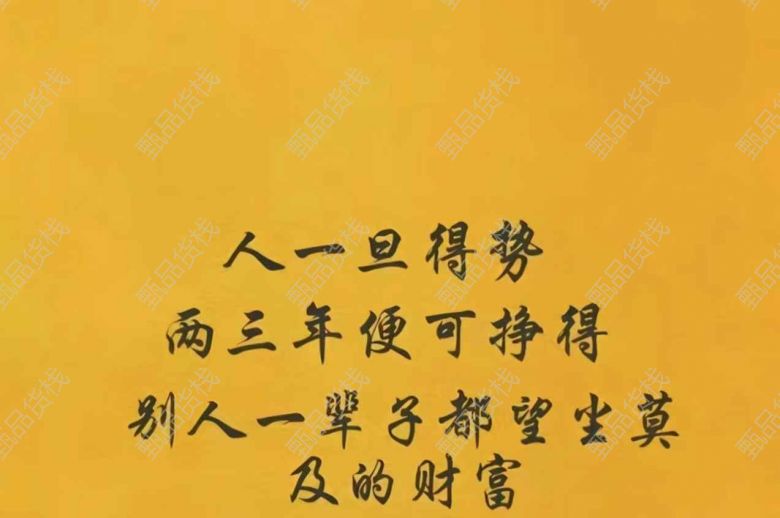 人一旦得势
两三年便可挣得
别人一辈子都望尘莫
及的财富
甄品货栈